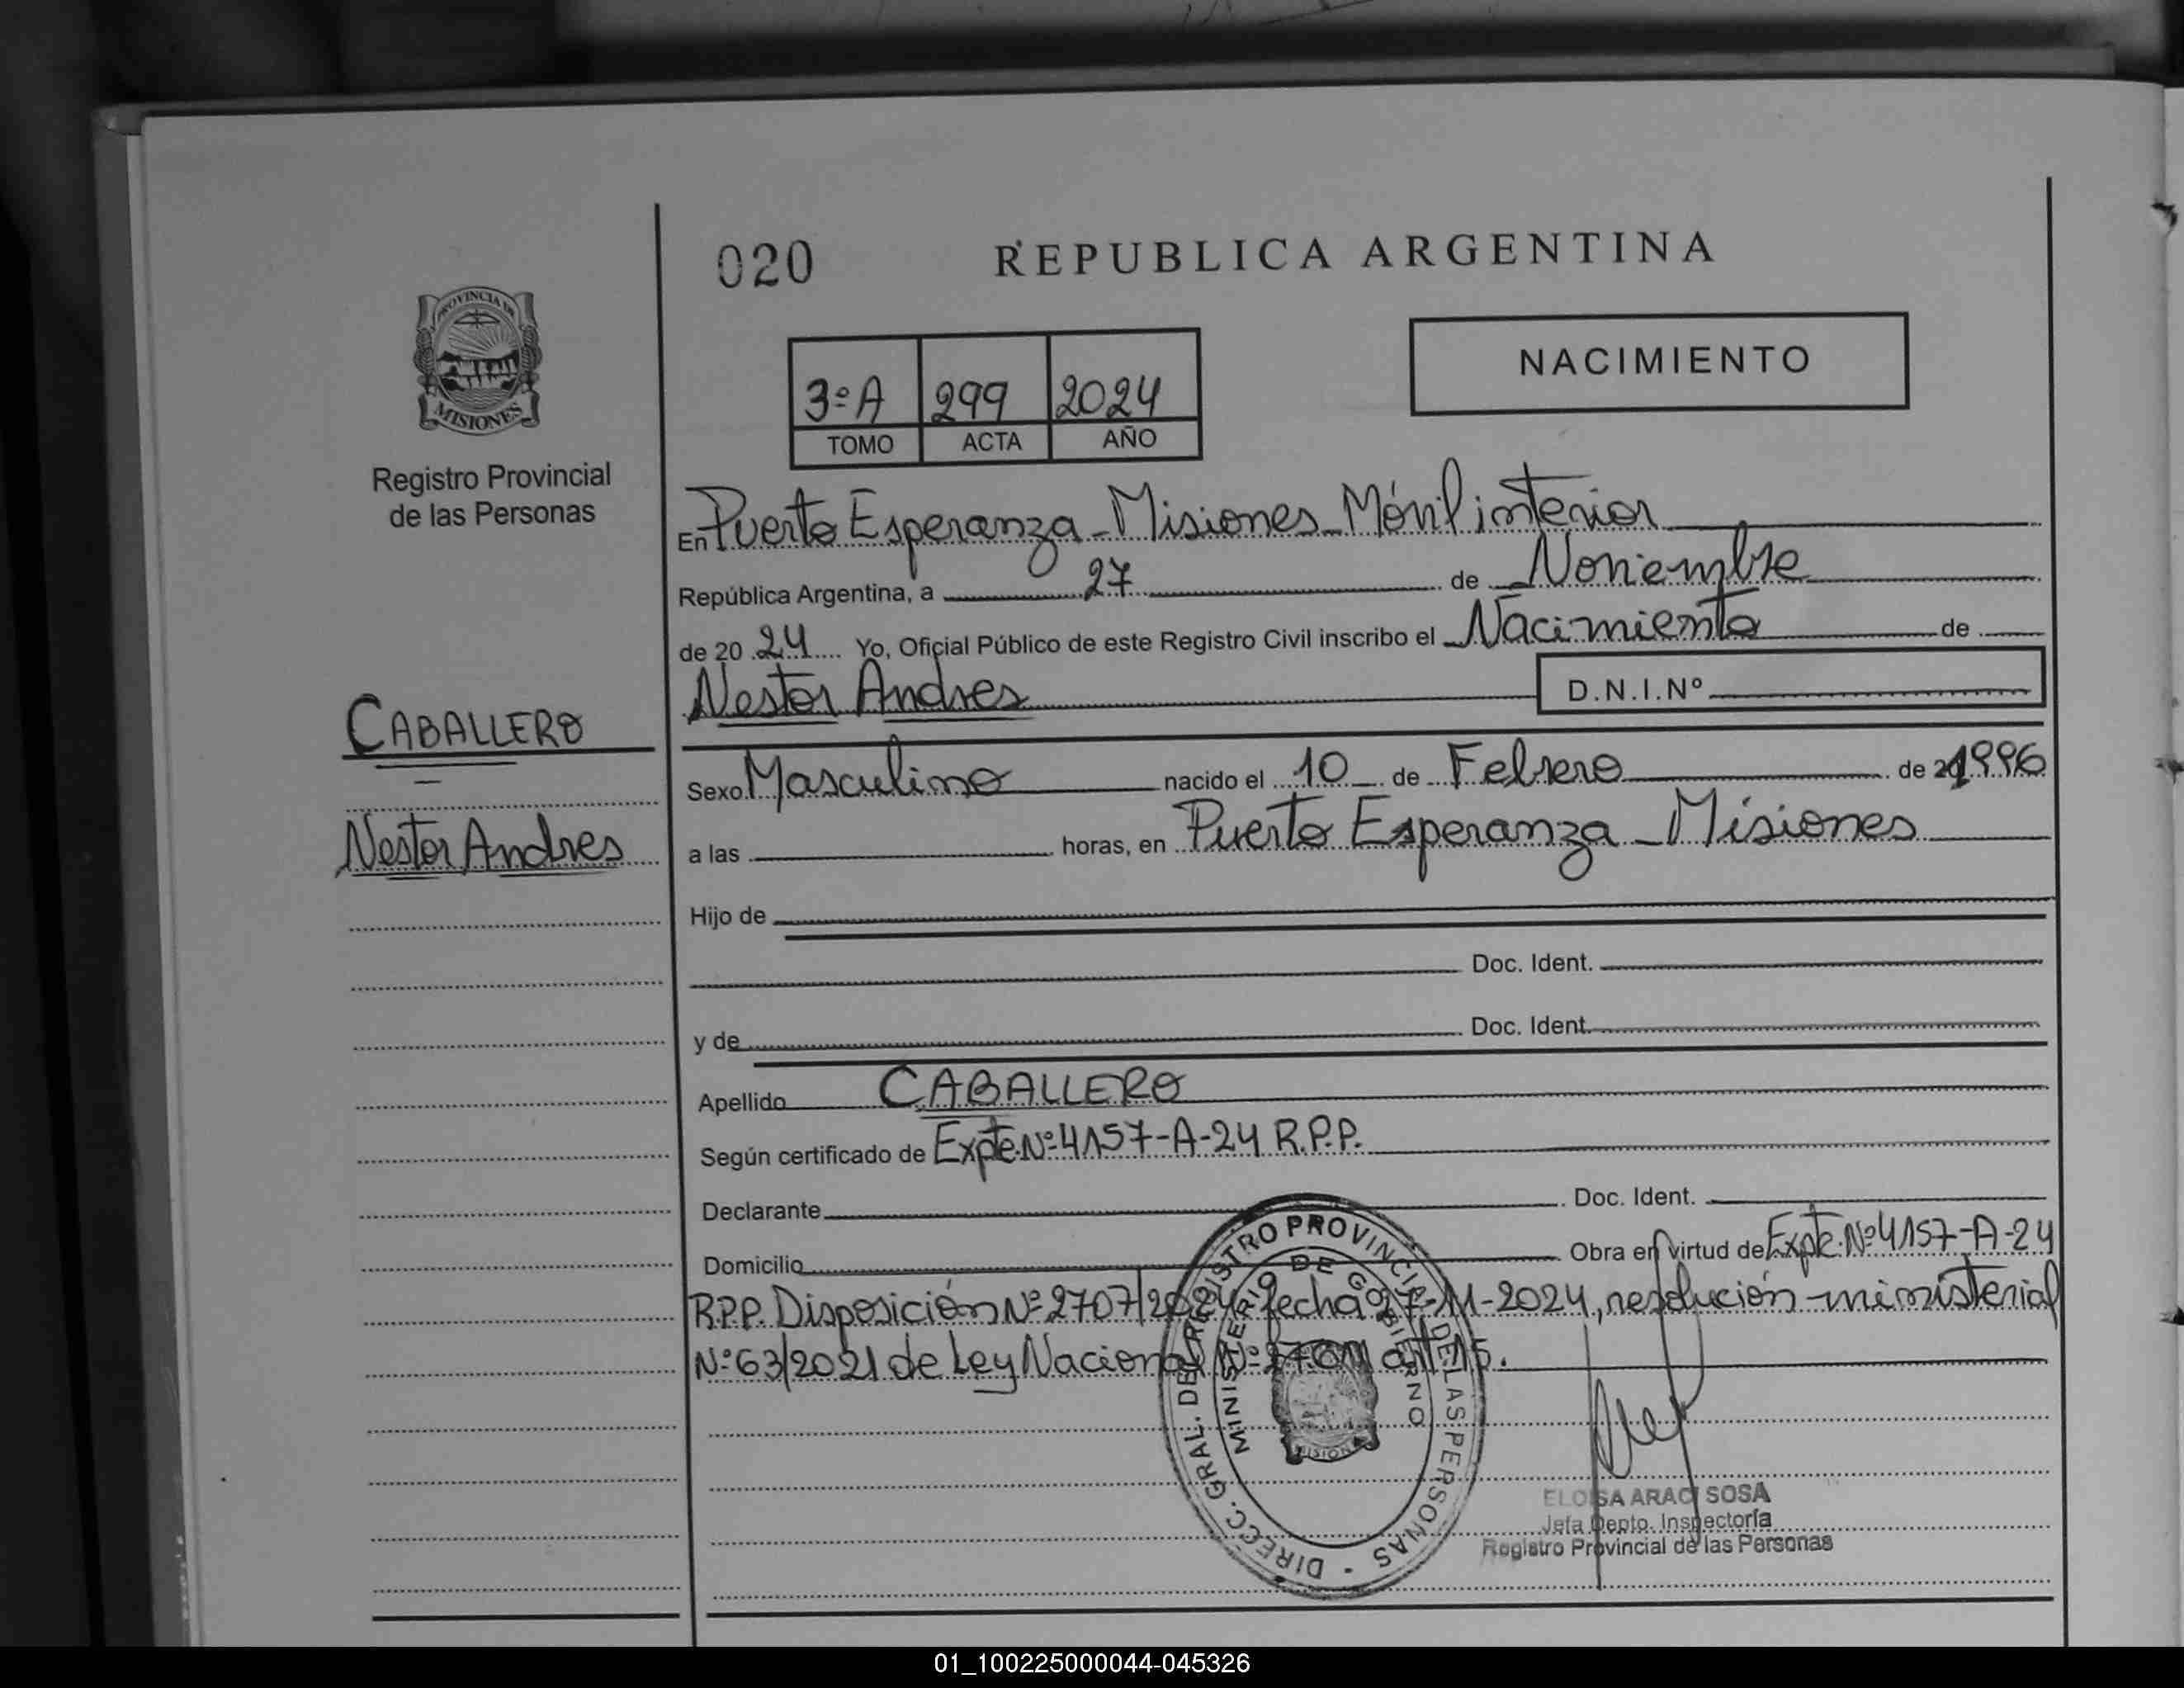 020
REPUBLICA ARGENTINA
PROVINCIA DE
MISIONES
Registro Provincial
de las Personas
3º A 299 2024
TOMO ACTA AÑO
NACIMIENTO
En Puerto Esperanza - Misiones - Móvil interior
República Argentina, a 27 de Noviembre
de 20 24 Yo, Oficial Público de este Registro Civil inscribo el Nacimiento de
Nestor Andres D.N.I.Nº
CABALLERO
Nestor Andres
Sexo Masculino nacido el 10 de Febrero de 1996
a las horas, en Puerto Esperanza - Misiones
Hijo de
Doc. Ident.
y de Doc. Ident.
Apellido CABALLERO
Según certificado de Expte. Nº 4157-A-24 R.P.P.
Declarante Doc. Ident.
Domicilio Obra en virtud de Expte. Nº 4157-A-24
R.P.P. Disposición Nº 2707/2024 fecha 27-11-2024, resolución ministerial
Nº 63/2021 de Ley Nacional Nº art 15.
DIRECC. GRAL. DEL REGISTRO PROVINCIAL DE LAS PERSONAS
MINISTERIO DE GOBIERNO
ELOISA ARACI SOSA
Jefa Depto. Inspectoría
Registro Provincial de las Personas
01_100225000044-045326